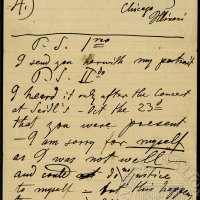 4.)
Chicago
Illinois
P. S. I mo
I send you herewith my portrait
P. S. II do
I heard it only after the Concert
at Seidl's – Oct the 23rd
that you were present –
– I am sorry for myself
as I was not well
and could not do justice
to myself – but this happens
to me